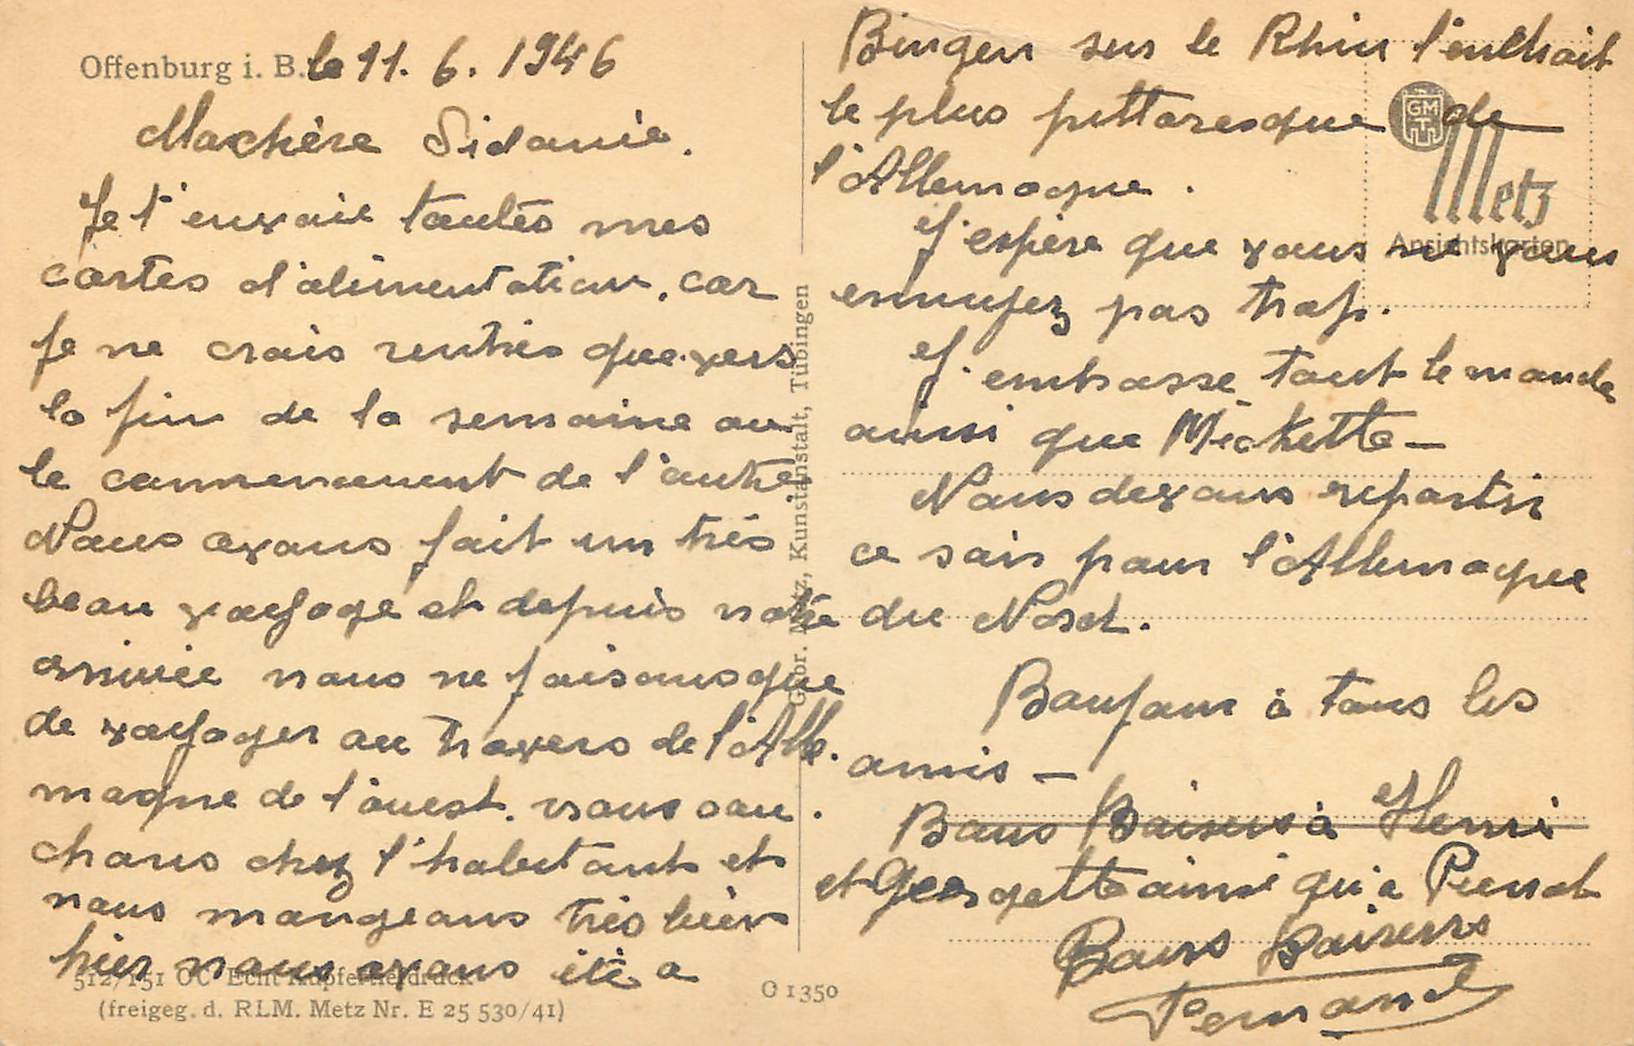 Offenburg i. B. le 11. 6. 1946
Ma chère Sidonie.
Je t'envoie toutes mes
cartes d'alimentation, car
je ne crois rentrer que vers
la fin de la semaine ou
le commencement de l'autre
Nous avons fait un très
beau voyage et depuis notre
arrivée nous ne faisons que
de voyager au travers de l'Alle.
magne de l'ouest. nous cou.
chons chez l'habitant et
nous mangeons très bien
hier nous avons été a
512/151 OC Echt Kupfertiefdruck
(freigeg. d. RLM. Metz Nr. E 25 530/41)
Gebr. Metz, Kunstanstalt, Tübingen
O 1350
Bingen sur le Rhin l'enthoit
le plus pittoresque de
l'Allemagne.
J'espère que vous ne vous
ennuyez pas trop.
J'embrasse tout le monde
ainsi que Mickette —
Nous devons repartir
ce soir pour l'Allemagne
du Nord.
Bonjour à tous les
amis —
Bons Baisers à Henri
et Georgette ainsi qu'a Pierrot
Bons Baisers
Fernand
GM
T
Metz
Ansichtskarten